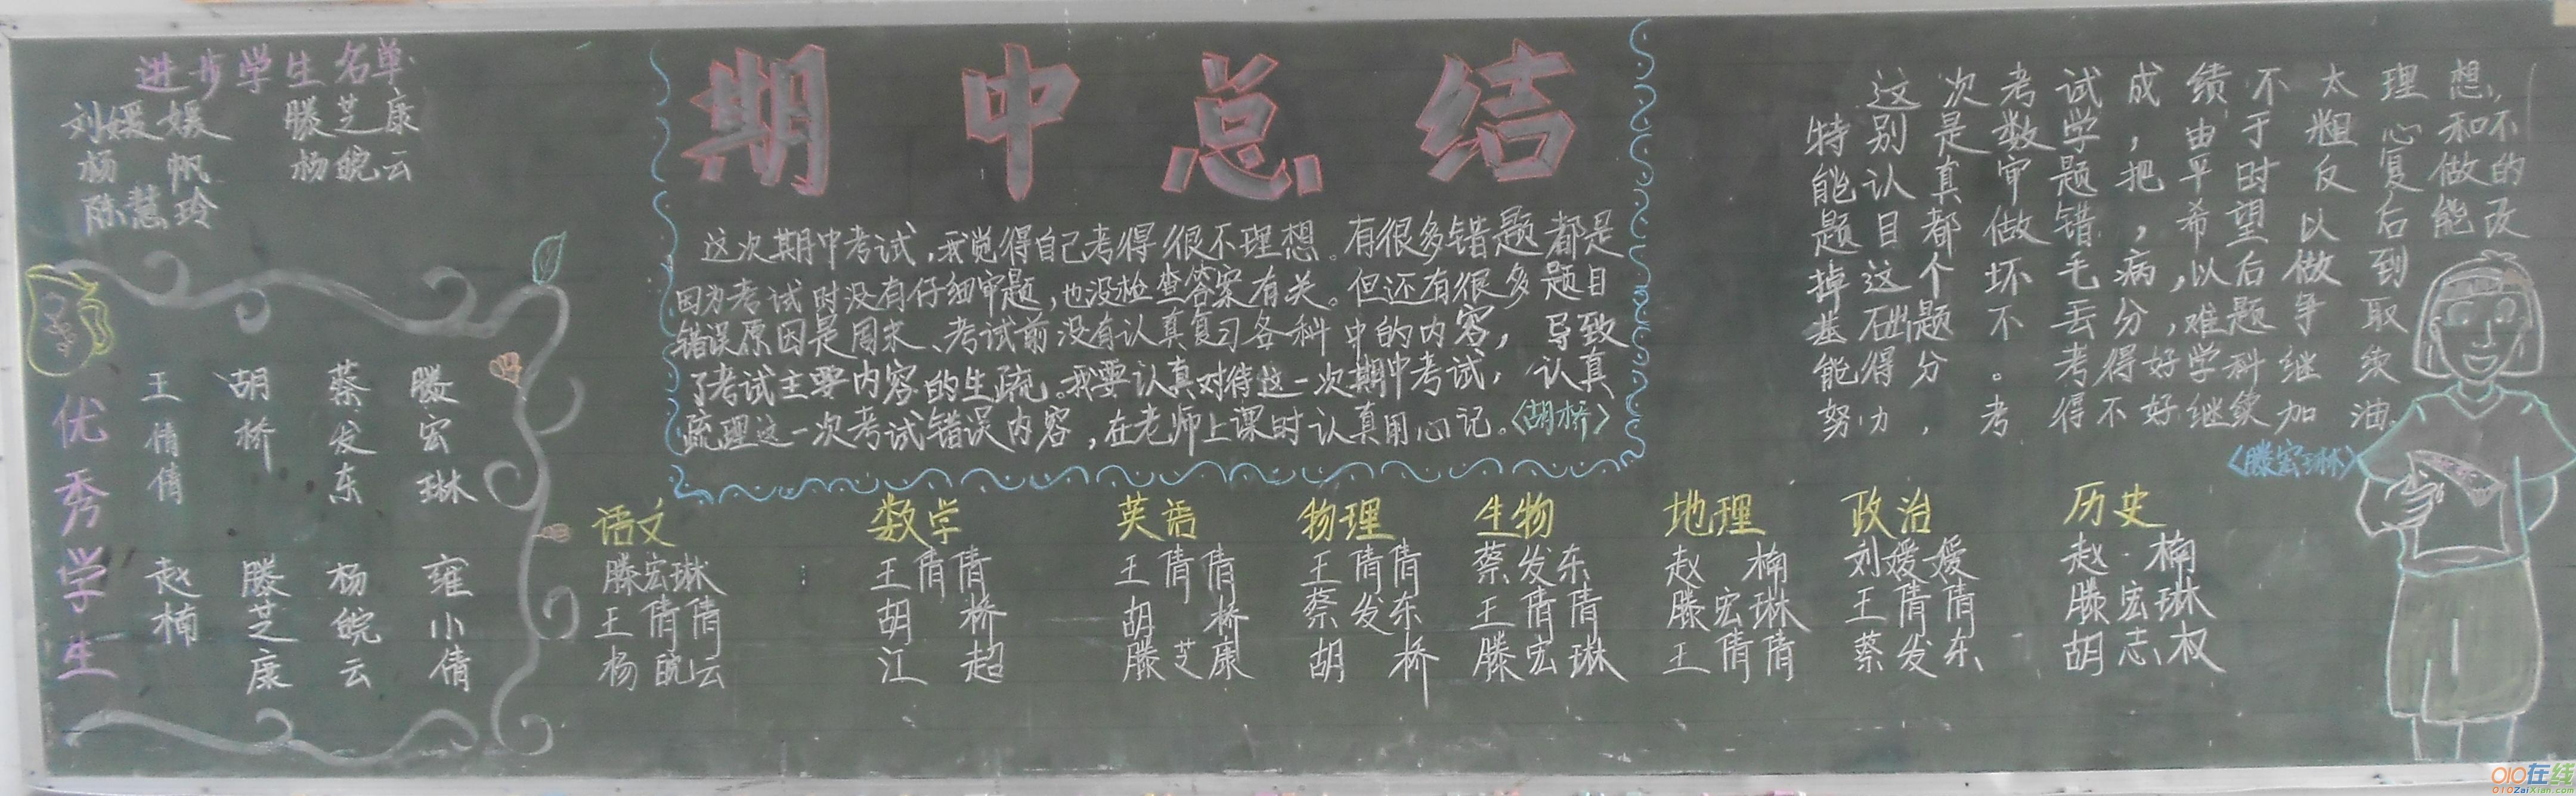 进步学生名单
刘媛媛 滕芝康
杨 帆 杨皖云
陈慧玲
优秀学生
王倩倩 胡桥 蔡发东 滕宏琳
赵楠 滕芝康 杨皖云 雍小倩
期中总结
这次期中考试,我觉得自己考得很不理想。有很多错题都是
因为考试时没有仔细审题,也没检查答案有关。但还有很多题目
错误原因是周末、考试前没有认真复习各科中的内容,导致
了考试主要内容的生疏。我要认真对待这一次期中考试,认真
疏理这一次考试错误内容,在老师上课时认真用心记。〈胡桥〉
这次考试成绩不太理想,
特别是数学,由于粗心和不
能认真审题把平时反复做的
题目都做错,希望以后能改
掉这个坏毛病,以后做到
基础题不丢分,难题争取
能得分。考得好学科继续
努力,考得不好继续加油
〈滕宏琳〉
语文 数学 英语 物理 生物 地理 政治 历史
滕宏琳 王倩倩 王倩倩 王倩倩 蔡发东 赵 楠 刘媛媛 赵 楠
王倩倩 胡 桥 胡 桥 蔡发东 王倩倩 滕宏琳 王倩倩 滕宏琳
杨皖云 江 超 滕芝康 胡 桥 滕宏琳 王倩倩 蔡发东 胡志权
010在线
010ZaiXian.com